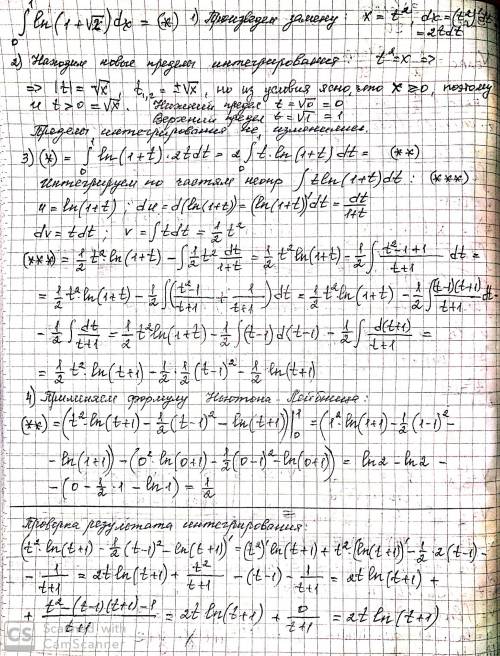 ∫₀¹ ln(1+√x)dx = (*) 1) Произведем замену x = t², dx = (t²)'dt
= 2tdt
2) Находим новые пределы интегрирования: t² = x ⇒
⇒ |t| = √x, t₁,₂ = ±√x, но из условия ясно, что x ≥ 0, поэтому
и t > 0 = √x. Нижний предел t = √0 = 0
Верхний предел t = √1 = 1
Пределы интегрирования не изменились.
3) (*) = ∫₀¹ ln(1+t)·2tdt = 2∫₀¹ t·ln(1+t)dt = (**)
Интегрируем по частям неопр ∫tln(1+t)dt: (***)
u = ln(1+t); du = d(ln(1+t)) = (ln(1+t))'dt = dt/(1+t)
dv = tdt; v = ∫tdt = 1/2 t²
(***) = 1/2 t² ln(1+t) - ∫1/2 t² dt/(1+t) = 1/2 t² ln(1+t) - 1/2 ∫(t²-1+1)/(t+1) dt =
= 1/2 t² ln(1+t) - 1/2 ∫((t²-1)/(t+1) + 1/(t+1))dt = 1/2 t² ln(1+t) - 1/2 ∫(t-1)(t+1)/(t+1) dt
- 1/2 ∫dt/(t+1) = 1/2 t² ln(1+t) - 1/2 ∫(t-1)d(t-1) - 1/2 ∫d(t+1)/(t+1) =
= 1/2 t²·ln(t+1) - 1/2·1/2 (t-1)² - 1/2·ln(t+1)
4) Применяем формулу Ньютона-Лейбница:
(**) = (t²·ln(t+1) - 1/2(t-1)² - ln(t+1))|₀¹ = (1² ln(1+1) - 1/2(1-1)² -
- ln(1+1)) - (0²·ln(0+1) - 1/2(0-1)² - ln(0+1)) = ln2 - ln2 -
- (0 - 1/2·1 - ln1) = 1/2
Проверка результата интегрирования:
(t²·ln(t+1) - 1/2(t-1)² - ln(t+1))' = (t²)' ln(t+1) + t²(ln(t+1))' - 1/2·2(t-1) -
- 1/(t+1) = 2tln(t+1) + t²/(t+1) - (t-1) - 1/(t+1) = 2tln(t+1) +
+ (t²-(t-1)(t+1)-1)/(t+1) = 2tln(t+1) + 0/(t+1) = 2tln(t+1)
CS Scanned with
CamScanner